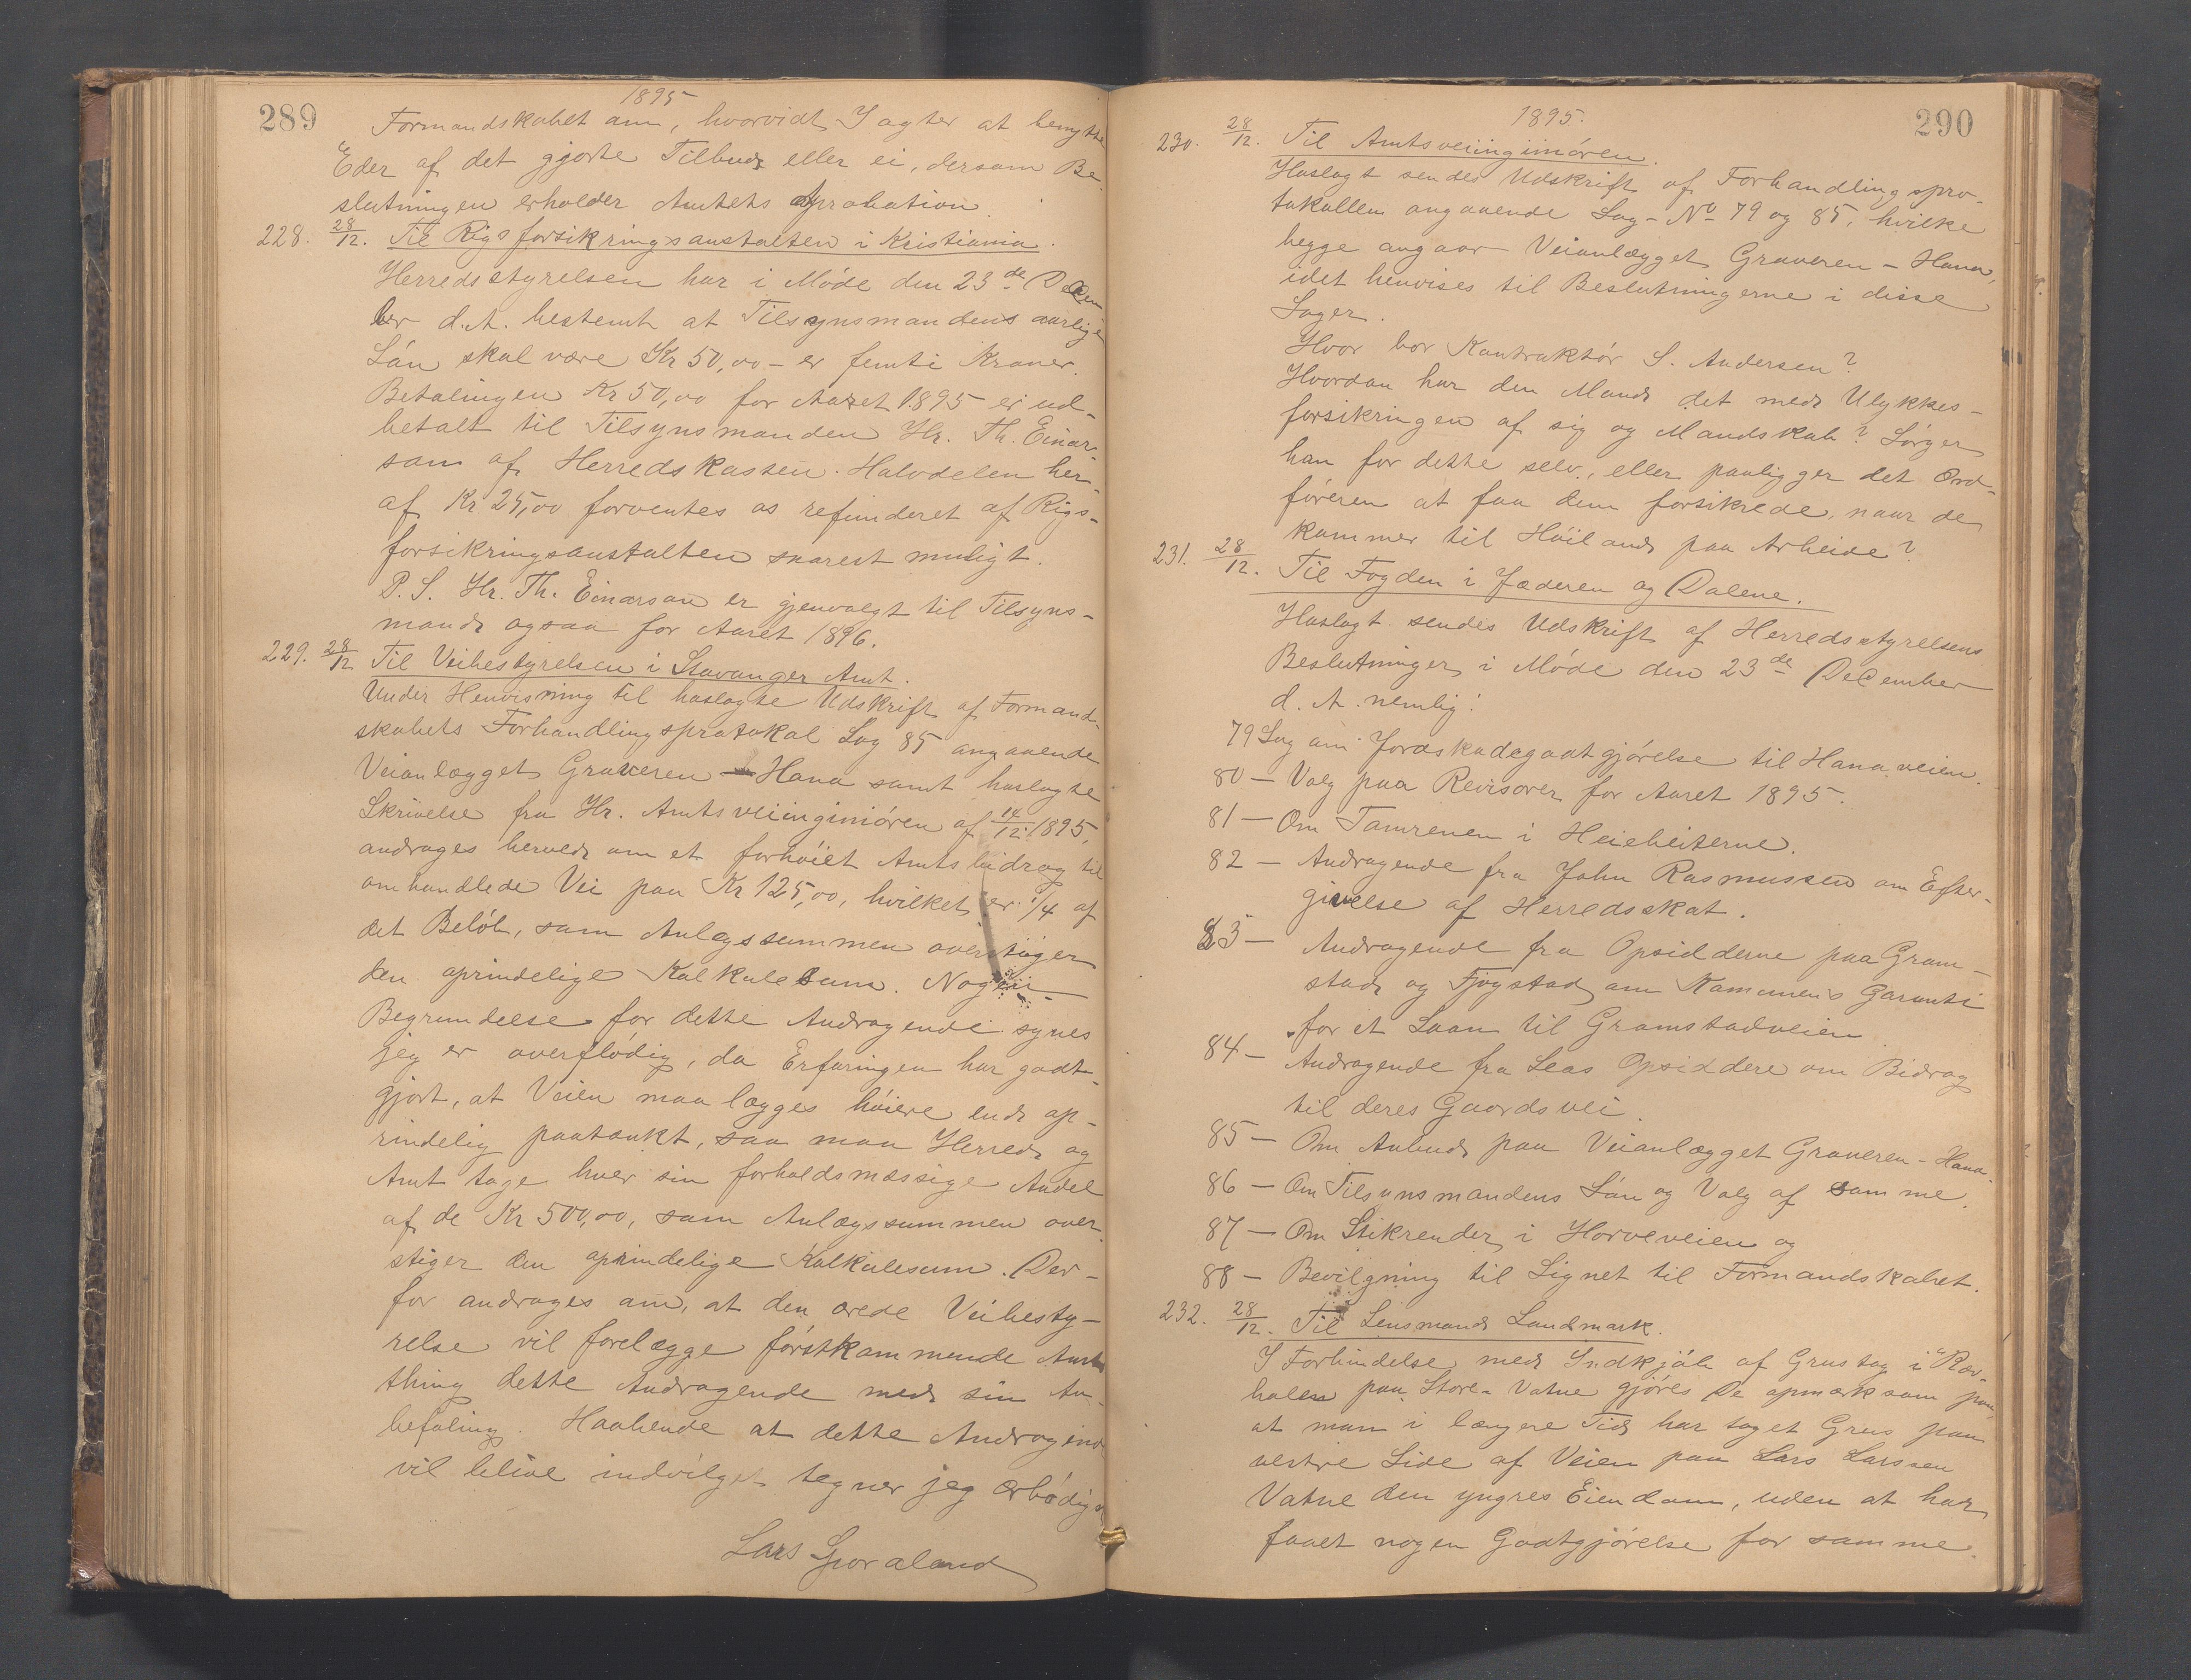 289
1895
Formandskabet om, hvorvidt I agter at benytte
Eder af det gjorte Tilbud eller ei, dersom Be-
slutningen erholder Amtets Aprobation.
228. 28/12. Til Rigsforsikringsanstalten i Kristiania.
Herredsstyrelsen har i Møde den 23de Decem
ber d. A. bestemt at Tilsynsmandens aarlige
Løn skal være Kr 50,00 - er femti Kroner.
Betalingen Kr 50,00 for Aaret 1895 er ud-
betalt til Tilsynsmanden Hr. Th. Einar-
son af Herredskassen. Halvdelen her-
af Kr 25,00 forventes os refunderet af Rigs-
forsikringsanstalten snarest muligt.
P. S. Hr. Th. Einarson er gjenvalgt til Tilsyns-
mand ogsaa for Aaret 1896.
229. 28/12 Til Veibestyrelsen i Stavanger Amt.
Under Henvisning til hoslagte Udskrift af Formand-
skabets Forhandlingsprotokol Sag 85 angaaende
Veianlægget Graveren - Hana samt hoslagte
Skrivelse fra Hr. Amtsveiinginiøren af 14/12 1895,
androges herved om et forhøiet Amtsbidrag til
omhandlede Vei paa Kr 125,00, hvilket er 1/4 af
det Beløb, som Anlægssummen overstiger
den oprindelige Kalkulesum. Nogen
Begrundelse for dette Andragende synes
jeg er overflødig, da Erfaringen har godt-
gjort, at Veien maa lægges høiere end op-
rindelig paatænkt, saa maa Herred og
Amt tage hver sin forholdsmæssige Andel
af de Kr 500,00, som Anlægssummen over-
stiger den oprindelige Kalkulesum. Der-
for androges om, at den ærede Veibesty-
relse vil forelægge førstkommende Amts
thing dette Andragende med sin An-
befaling. Haabende at dette Andragende
vil blive indvilget tegner jeg ærbødigst
Lars Sporaland
290
1895.
230. 28/12. Til Amtsveiinginiøren.
Hoslagt sendes Udskrift af Forhandlingspro-
tokollen angaaende Sag - No 79 og 85, hvilke
begge angaar Veianlægget Graveren - Hana,
idet henvises til Beslutningerne i disse
Sager.
Hvor bor Kontraktør S. Andersen?
Hvordan har den Mand det med Ulykkes-
forsikringen af sig og Mandskab? Sørger
han for dette selv, eller paaligger det Ord-
føreren at faa dem forsikrede, naar de
kommer til Høiland paa Arbeide?
231. 28/12. Til Fogden i Jæderen og Dalene.
Hoslagt sendes Udskrift af Herredsstyrelsens
Beslutninger i Møde den 23de December
d. A. nemlig:
79 Sag om Jordskadegodtgjørelse til Hanaveien.
80 - Valg paa Revisorer for Aaret 1895.
81 - Om Tamrenen i Heiebeiterne.
82 - Andragende fra John Rasmussen om Efter-
givelse af Herredsskat.
83 - Andragende fra Opsidderne paa Gram-
stad og Fjogstad om Komunens Garanti
for et Laan til Gramstadveien
84 - Andragende fra Leas Opsiddere om Bidrag
til deres Gaardsvei.
85 - Om Anbud paa Veianlægget Graveren - Hana.
86 - Om Tilsynsmandens Løn og Valg af samme.
87 - Om Stikrender i Horveveien og
88 - Bevilgning til Signet til Formandskabet.
232. 28/12. Til Lensmand Landmark.
I Forbindelse med Indkjøb af Grustag i "Rær-
holen paa Store-Vatne gjøres De opmærksom paa,
at man i længere Tid har taget Grus paa
vestre Side af Veien paa Lars Larssen
Vatne den yngres Eiendom, uden at han
faaet nogen Godtgjørelse for samme.